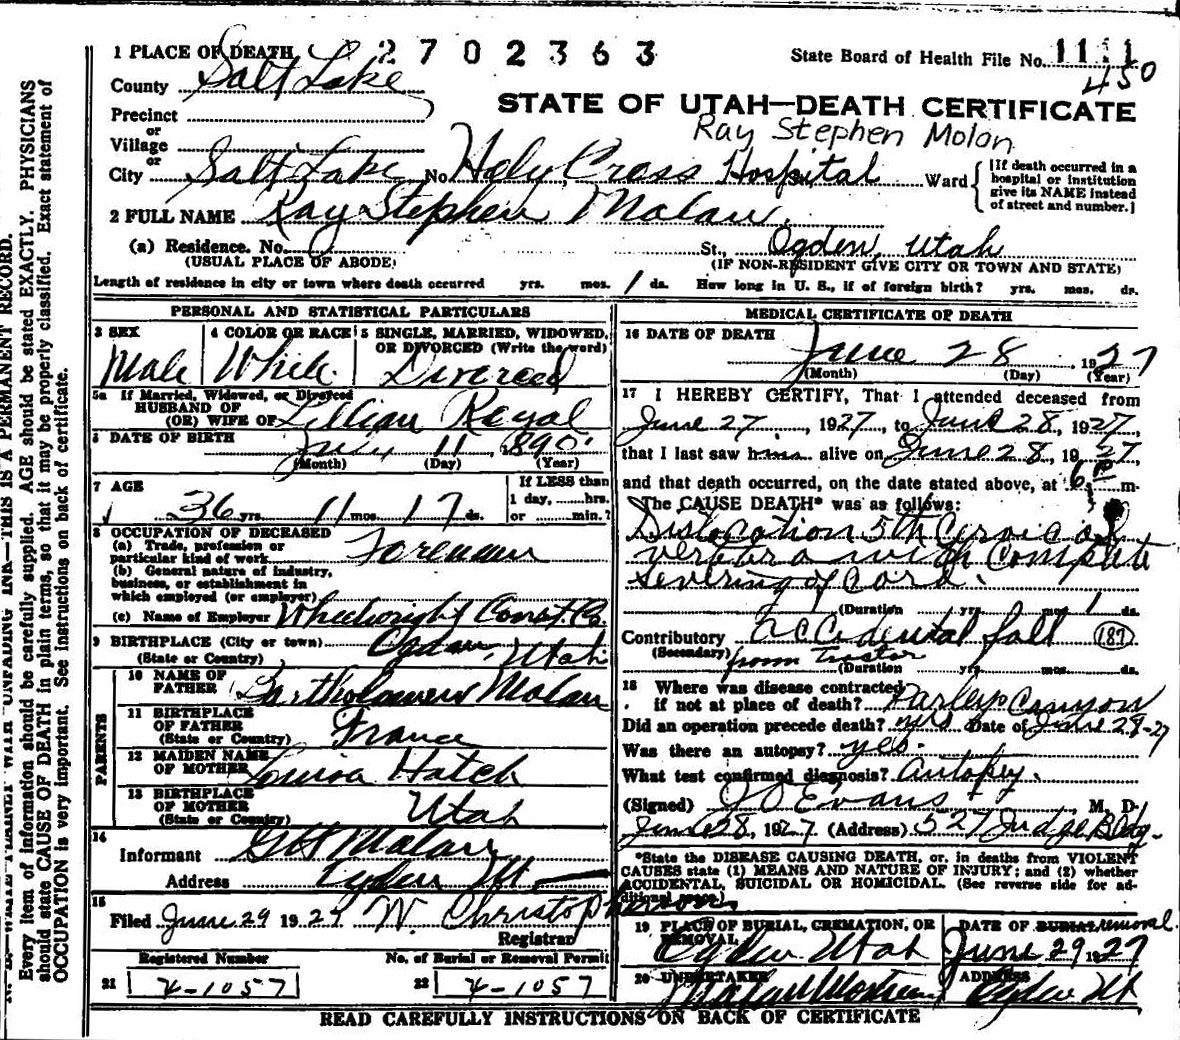 1 PLACE OF DEATH 2702363 State Board of Health File No. 1111
450
County Salt Lake
STATE OF UTAH—DEATH CERTIFICATE
Precinct
or
Ray Stephen Molon
Village
or
City Salt Lake No. Holy Cross Hospital Ward [If death occurred in a
hospital or institution
give its NAME instead
of street and number.]
2 FULL NAME Ray Stephen Malan.
(a) Residence. No. St., Ogden, Utah
(USUAL PLACE OF ABODE) (IF NON-RESIDENT GIVE CITY OR TOWN AND STATE)
Length of residence in city or town where death occurred yrs. mos. 1 ds. How long in U. S., if of foreign birth? yrs. mos. ds.
PERSONAL AND STATISTICAL PARTICULARS
3 SEX 4 COLOR OR RACE 5 SINGLE, MARRIED, WIDOWED,
OR DIVORCED (Write the word)
Male White Divorced
5a If Married, Widowed, or Divorced
HUSBAND OF
(OR) WIFE OF Lillian Royal
6 DATE OF BIRTH July 11 1890
(Month) (Day) (Year)
7 AGE If LESS than
1 day, hrs.
36 yrs. 11 mos. 17 ds. or min.?
8 OCCUPATION OF DECEASED
(a) Trade, profession or
particular kind of work Foreman
(b) General nature of industry,
business, or establishment in
which employed (or employer)
(c) Name of Employer Wheelwright Const. Co.
9 BIRTHPLACE (City or town) Ogden, Utah
(State or Country)
PARENTS
10 NAME OF
FATHER Bartholomew Malan
11 BIRTHPLACE
OF FATHER
(State or Country) France
12 MAIDEN NAME
OF MOTHER Louisa Hatch
13 BIRTHPLACE
OF MOTHER
(State or Country) Utah
14
Informant Malan
Address Ogden Ut
15
Filed June 29 1927 W. Christopherson
Registrar
Registered Number No. of Burial or Removal Permit
21 4-1057 22 4-1057
MEDICAL CERTIFICATE OF DEATH
16 DATE OF DEATH
June 28 1927
(Month) (Day) (Year)
17 I HEREBY CERTIFY, That I attended deceased from
June 27, 1927, to June 28, 1927,
that I last saw him alive on June 28, 1927,
and that death occurred, on the date stated above, at 6 P m.
The CAUSE DEATH* was as follows:
Dislocation 5th Cervical
vertebra with complete
severing of cord.
(Duration yrs. mos. 1 ds.
Contributory accidental fall (187)
(Secondary) from Tractor
(Duration yrs. mos. ds.
18 Where was disease contracted
if not at place of death? Parleys Canyon
Did an operation precede death? yes Date of June 28-27
Was there an autopsy? yes.
What test confirmed diagnosis? Autopsy.
(Signed) J O Evans, M. D.
June 28, 1927. (Address) 527 Judge Bldg.
*State the DISEASE CAUSING DEATH, or, in deaths from VIOLENT
CAUSES state (1) MEANS AND NATURE OF INJURY; and (2) whether
ACCIDENTAL, SUICIDAL OR HOMICIDAL. (See reverse side for ad-
ditional space.)
19 PLACE OF BURIAL, CREMATION, OR
REMOVAL
Ogden Utah
DATE OF BURIAL removal
June 29 1927
20 UNDERTAKER
Malan Mortuary
ADDRESS
Ogden Ut
READ CAREFULLY INSTRUCTIONS ON BACK OF CERTIFICATE
N. B.—WRITE PLAINLY WITH UNFADING INK—THIS IS A PERMANENT RECORD.
Every item of information should be carefully supplied. AGE should be stated EXACTLY. PHYSICIANS
should state CAUSE OF DEATH in plain terms, so that it may be properly classified. Exact statement of
OCCUPATION is very important. See instructions on back of certificate.